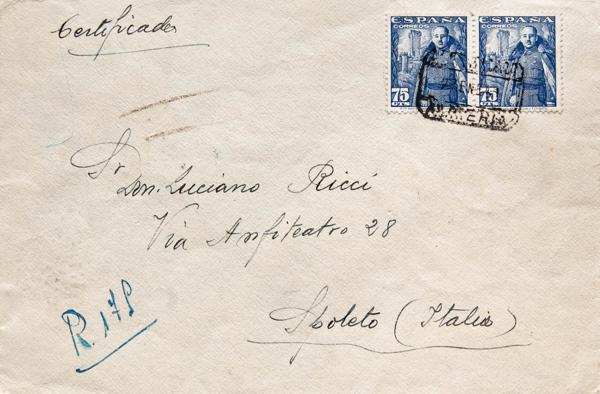 Certificado
ESPAÑA ESPAÑA
CORREOS CORREOS
75 75
CTS. CTS.
ALMERIA
Sr
Don. Luciano Ricci
Via Anfiteatro 28
Spoleto (Italia)